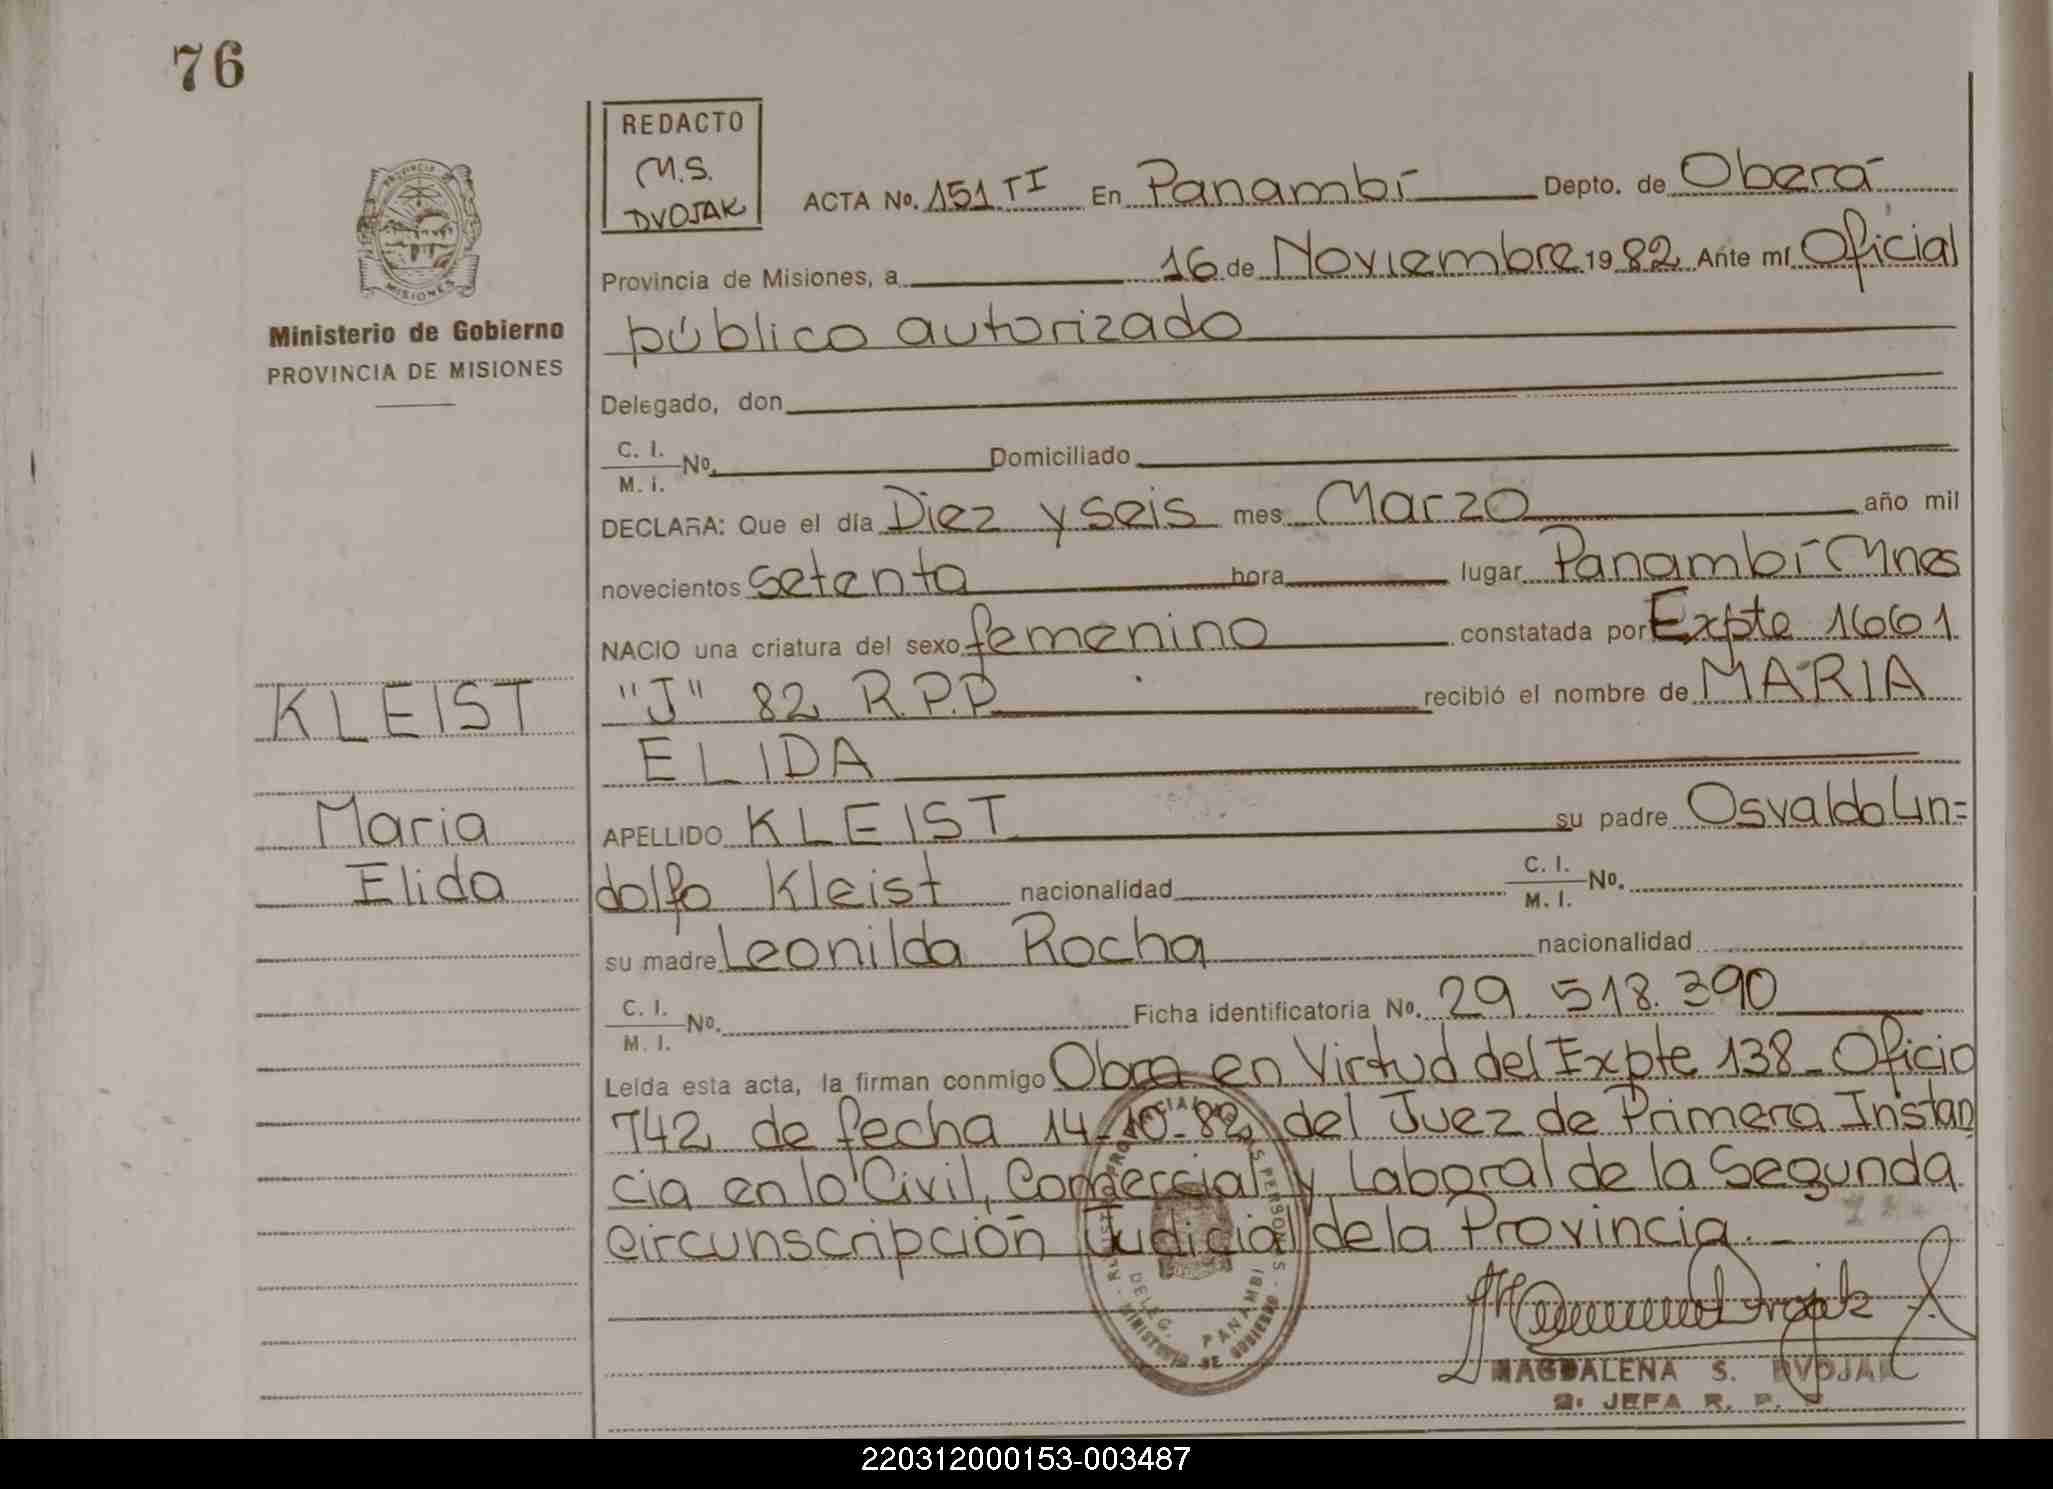 76
REDACTO
M.S.
DVOJAK
ACTA No. 151 TI En Panambí Depto. de Oberá
Provincia de Misiones, a 16 de Noviembre 1982 Ante mí Oficial
público autorizado
Delegado, don
C. I.
M. I. No. Domiciliado
DECLARA: Que el día Diez y seis mes Marzo año mil
novecientos setenta hora lugar Panambí Mnes
NACIO una criatura del sexo femenino constatada por Expte 1661
"J" 82 R.P.P recibió el nombre de MARIA
ELIDA
APELLIDO KLEIST su padre Osvaldo Lin=
dolfo Kleist nacionalidad C. I.
M. I. No.
su madre Leonilda Rocha nacionalidad
C. I.
M. I. No. Ficha identificatoria No. 29 518.390
Leida esta acta, la firman conmigo Obra en Virtud del Expte 138_Oficio
742 de fecha 14-10-82 del Juez de Primera Instan
cia en lo Civil, Comercial y Laboral de la Segunda
circunscripción Judicial de la Provincia._
MAGDALENA S. DVOJAK
2ª JEFA R. P. P.
MISIONES
Ministerio de Gobierno
PROVINCIA DE MISIONES
KLEIST
Maria
Elida
DELEG. PANAMBI
MINISTERIO DE GOBIERNO
220312000153-003487